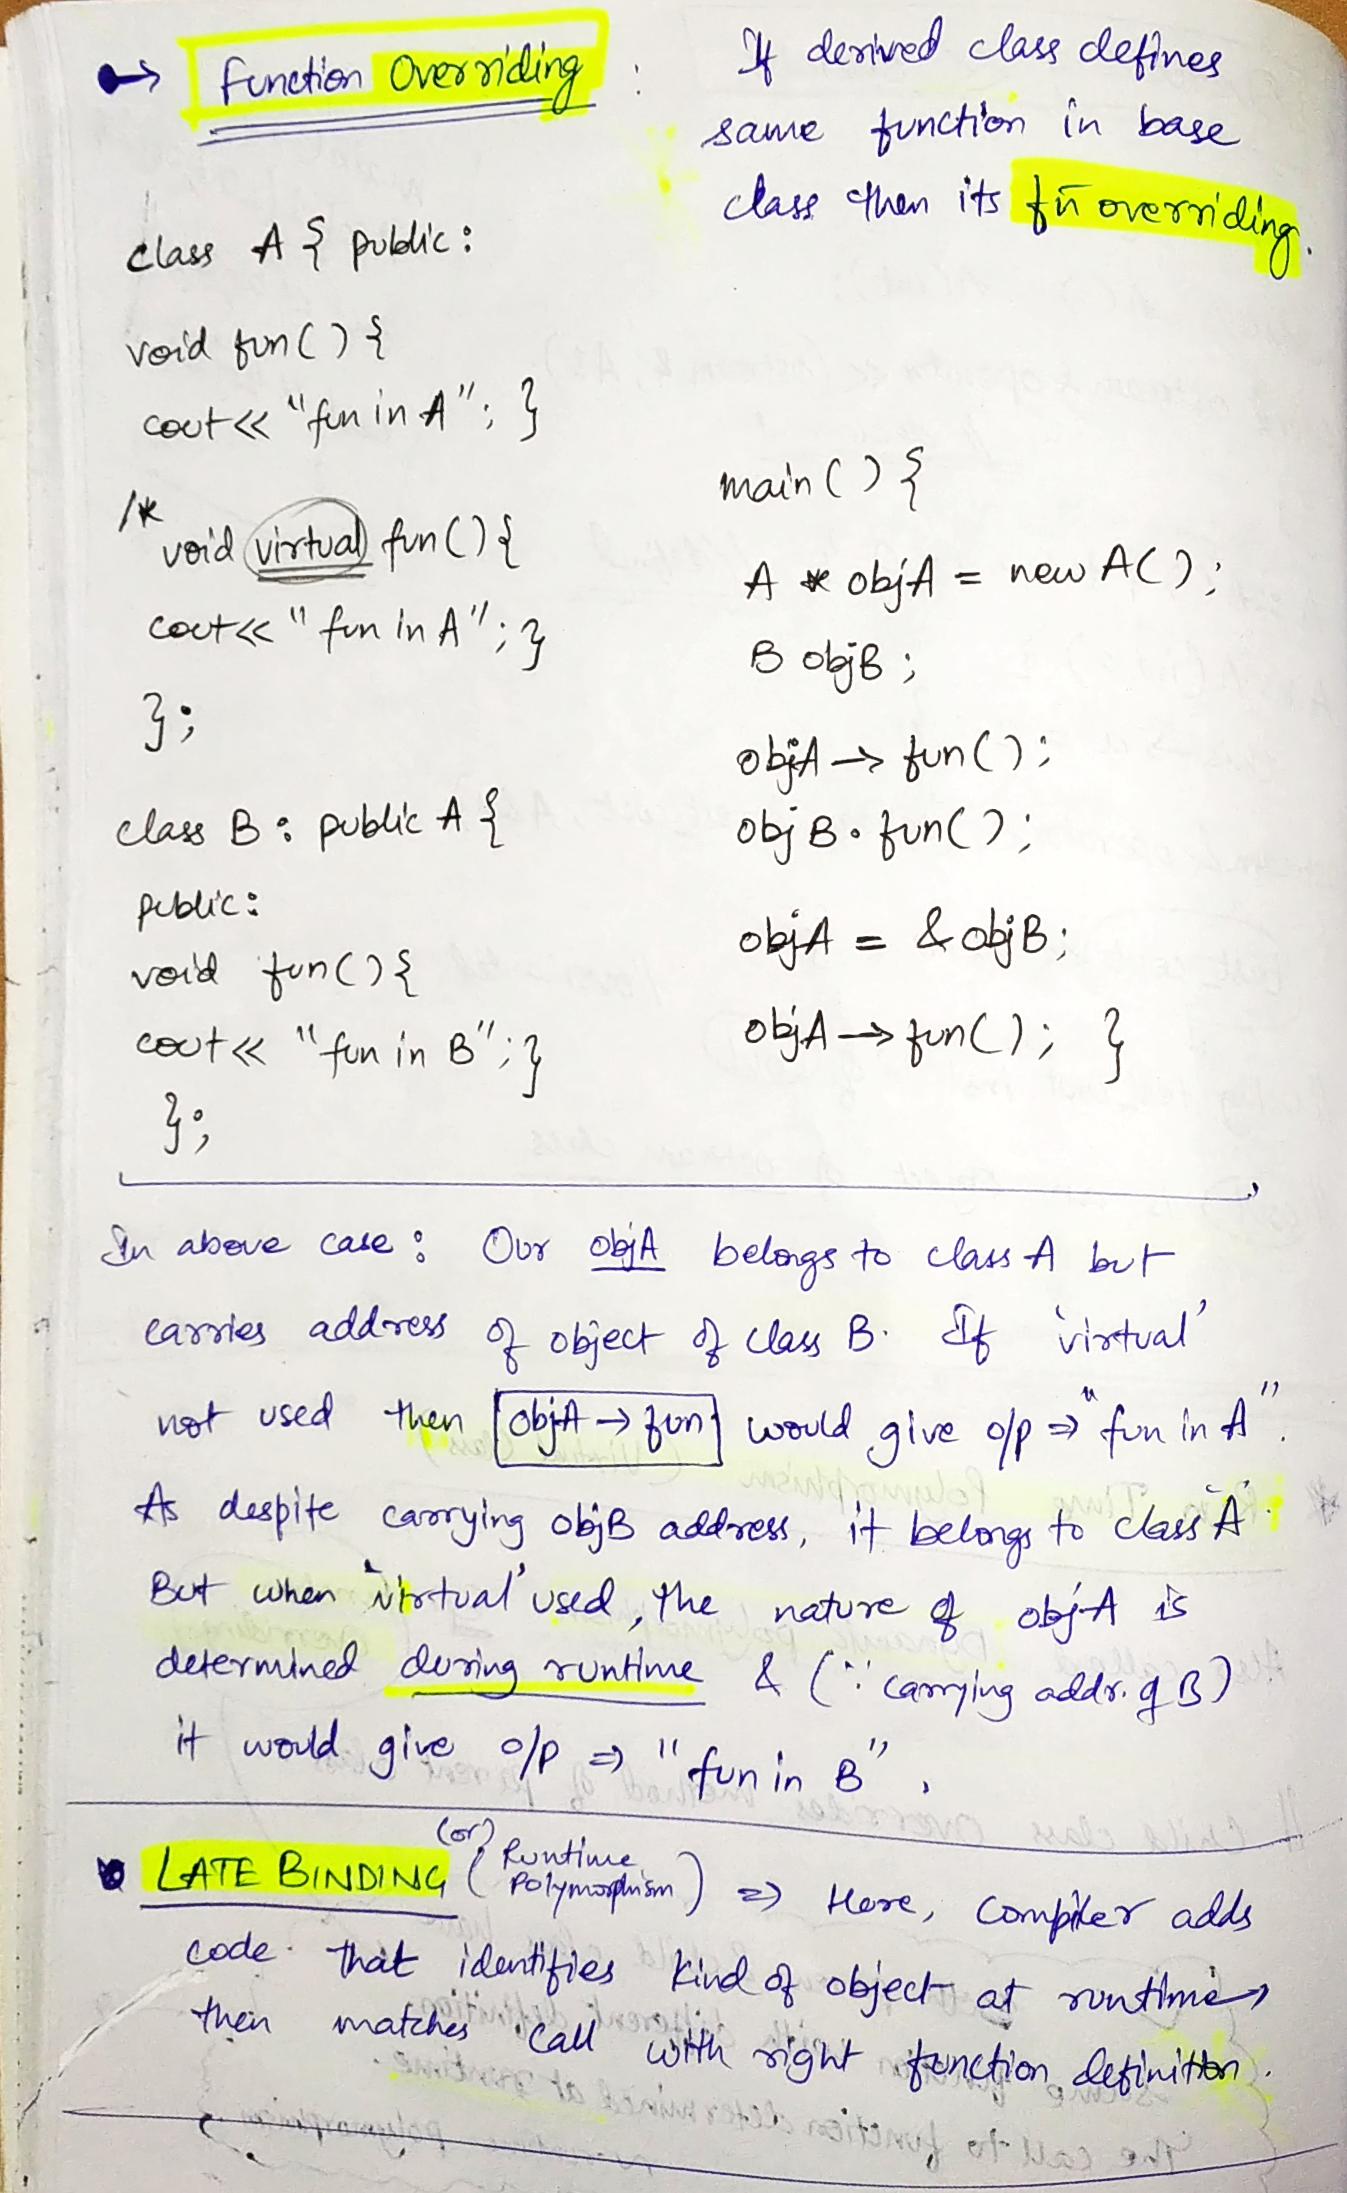 Function Overriding :
If derived class defines
same function in base
class then its fn̄ overriding.
class A { public :
void fun() {
cout << "fun in A"; }
/*
void virtual fun() {
cout << "fun in A"; }
};
class B : public A {
public:
void fun() {
cout << "fun in B"; }
};
main() {
A * objA = new A();
B objB ;
objA → fun();
objB . fun();
objA = & objB;
objA → fun(); }
In above case : Our objA belongs to class A but
carries address of object of class B. If 'virtual'
not used then objA → fun would give o/p ⇒ "fun in A".
As despite carrying objB address, it belongs to class "A".
But when 'virtual' used, the nature of objA is
determined during runtime & (∵ carrying addr. of B)
it would give o/p ⇒ "fun in B",
LATE BINDING (or) (Runtime Polymorphism) ⇒ Here, compiler adds
code that identifies kind of object at runtime
then matches call with right function definition.